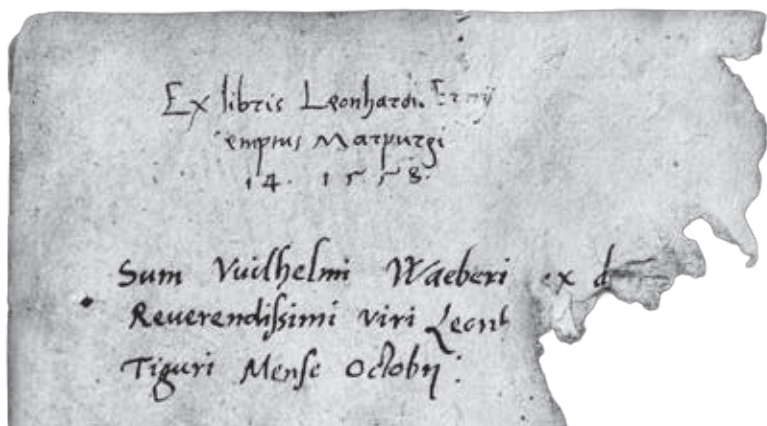 Ex libris Leonhardi Ernij
emptus Marpurgi
14. 1558.
Sum Vuilhelmi Waeberi ex d
Reuerendissimi viri Leonh
Tiguri Mense Octobri: